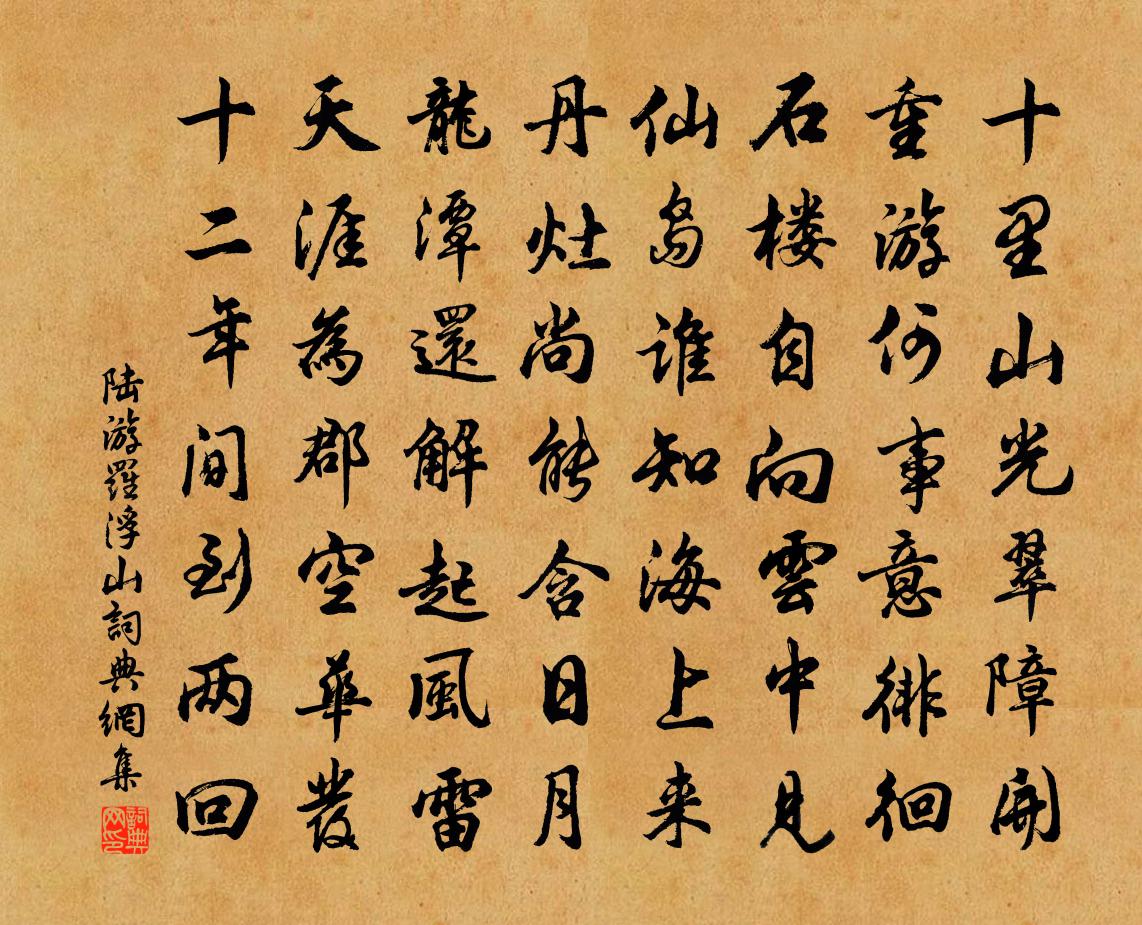 十里山光翠障開
重游何事意徘徊
石楼自向雲中見
仙島谁知海上来
丹灶尚能含日月
龍潭還解起風雷
天涯為郡空華發
十二年间到两回
陆游羅浮山詞典網集
詞典
网印